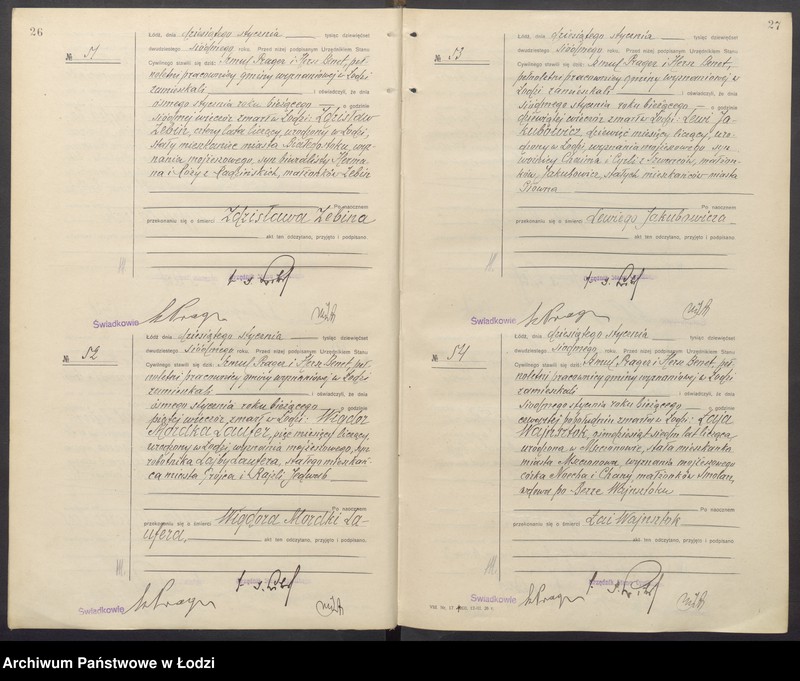 26
№ 51
Łódź, dnia dziesiątego stycznia tysiąc dziewięćset
dwudziestego siódmego roku. Przed niżej podpisanym Urzędnikiem Stanu
Cywilnego stawili się dziś: Szmul Prager i Hersz Benet, peł-
noletni pracownicy gminy wyznaniowej w Łodzi
zamieszkali i oświadczyli, że dnia
ósmego stycznia roku bieżącego o godzinie
siódmej wieczór zmarł w Łodzi: Zdzisław
Zebin, cztery lata liczący, urodzony w Łodzi,
stały mieszkaniec miasta Białegostoku, wyz-
nania mojżeszowego, syn biuralisty Herma-
na i Róży z małżonków Zebin
Po naocznem
przekonaniu się o śmierci Zdzisława Zebina
akt ten odczytano, przyjęto i podpisano.
Świadkowie
№ 52
Łódź, dnia dziesiątego stycznia tysiąc dziewięćset
dwudziestego siódmego roku. Przed niżej podpisanym Urzędnikiem Stanu
Cywilnego stawili się dziś: Szmul Prager i Hersz Benet, peł-
noletni pracownicy gminy wyznaniowej w Łodzi
zamieszkali i oświadczyli, że dnia
ósmego stycznia roku bieżącego o godzinie
piątej wieczór zmarł w Łodzi: Wigdor
Mordka Laufer, pięć miesięcy liczący,
urodzony w Łodzi, wyznania mojżeszowego, syn
robotnika Lajby Laufera, stałego mieszkań-
ca miasta Grójca i Rajzli Jedwab
Po naocznem
przekonaniu się o śmierci Wigdora Mordki La-
ufera, akt ten odczytano, przyjęto i podpisano.
Świadkowie
27
№ 53
Łódź, dnia dziesiątego stycznia tysiąc dziewięćset
dwudziestego siódmego roku. Przed niżej podpisanym Urzędnikiem Stanu
Cywilnego stawili się dziś: Szmul Prager i Hersz Benet,
pełnoletni pracownicy gminy wyznaniowej w
Łodzi zamieszkali i oświadczyli, że dnia
siódmego stycznia roku bieżącego o godzinie
dziewiątej wieczór zmarł w Łodzi: Lewi Ja-
kubowicz, dziewięć miesięcy liczący, uro-
dzony w Łodzi, wyznania mojżeszowego syn
woźnicy Chaima i Cyrli z Szwarców, małżon-
ków, Jakubowicz, stałych mieszkańców miasta
Główna
Po naocznem
przekonaniu się o śmierci Lewiego Jakubowicza
akt ten odczytano, przyjęto i podpisano.
Świadkowie
№ 54
Łódź, dnia dziesiątego stycznia tysiąc dziewięćset
dwudziestego siódmego roku. Przed niżej podpisanym Urzędnikiem Stanu
Cywilnego stawili się dziś: Szmul Prager i Hersz Benet, peł-
noletni pracownicy gminy wyznaniowej w Łodzi
zamieszkali i oświadczyli, że dnia
siódmego stycznia roku bieżącego o godzinie
czwartej popołudniu zmarła w Łodzi: Łaja
Wajnsztok, siedm lat licząca,
urodzona w Mszczonowie, stała mieszkanka
miasta Mszczonowa, wyznania mojżeszowego
córka Noecha i Chany, małżonków Smolarz,
wdowa po Berze Wajnsztoku
Po naocznem
przekonaniu się o śmierci Łai Wajnsztok
akt ten odczytano, przyjęto i podpisano.
Świadkowie
Archiwum Państwowe w Łodzi